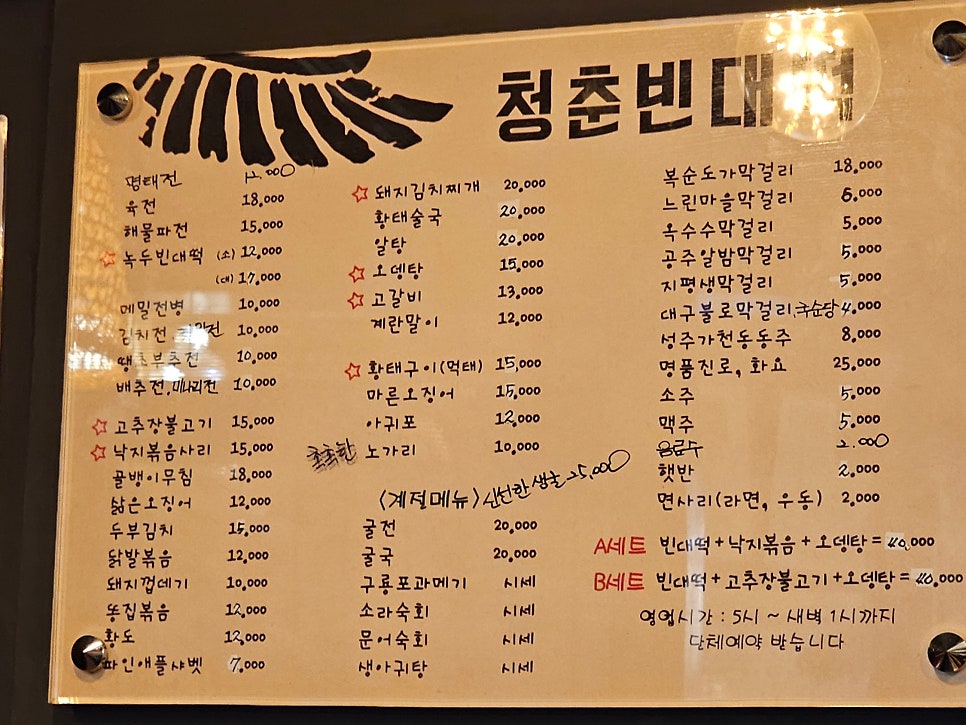 청춘빈대떡
명태전 12,000
육전 18,000
해물파전 15,000
녹두빈대떡 (소) 12,000
(대) 17,000
메밀전병 10,000
김치전, 전 10,000
땡초부추전 10,000
배추전, 미나리전 10,000
고추장불고기 15,000
낙지볶음사리 15,000
골뱅이무침 18,000
삶은오징어 12,000
두부김치 15,000
닭발볶음 12,000
돼지껍데기 10,000
똥집볶음 12,000
황도 12,000
파인애플샤벳 7,000
돼지김치찌개 20,000
황태술국 20,000
알탕 20,000
오뎅탕 15,000
고갈비 13,000
계란말이 12,000
황태구이(먹태) 15,000
마른오징어 15,000
아귀포 12,000
촉촉한 노가리 10,000
<계절메뉴> 신선한 생굴 25,000
굴전 20,000
굴국 20,000
구룡포과메기 시세
소라숙회 시세
문어숙회 시세
생아귀탕 시세
복순도가막걸리 18,000
느린마을막걸리 6,000
옥수수막걸리 5,000
공주알밤막걸리 5,000
지평생막걸리 5,000
대구불로막걸리, 국순당 4,000
성주가천동동주 8,000
명품진로, 화요 25,000
소주 5,000
맥주 5,000
음료수 2,000
햇반 2,000
면사리(라면, 우동) 2,000
A세트 빈대떡+낙지볶음+오뎅탕=40,000
B세트 빈대떡+고추장불고기+오뎅탕=40,000
영업시간 : 5시 ~ 새벽 1시까지
단체예약 받습니다